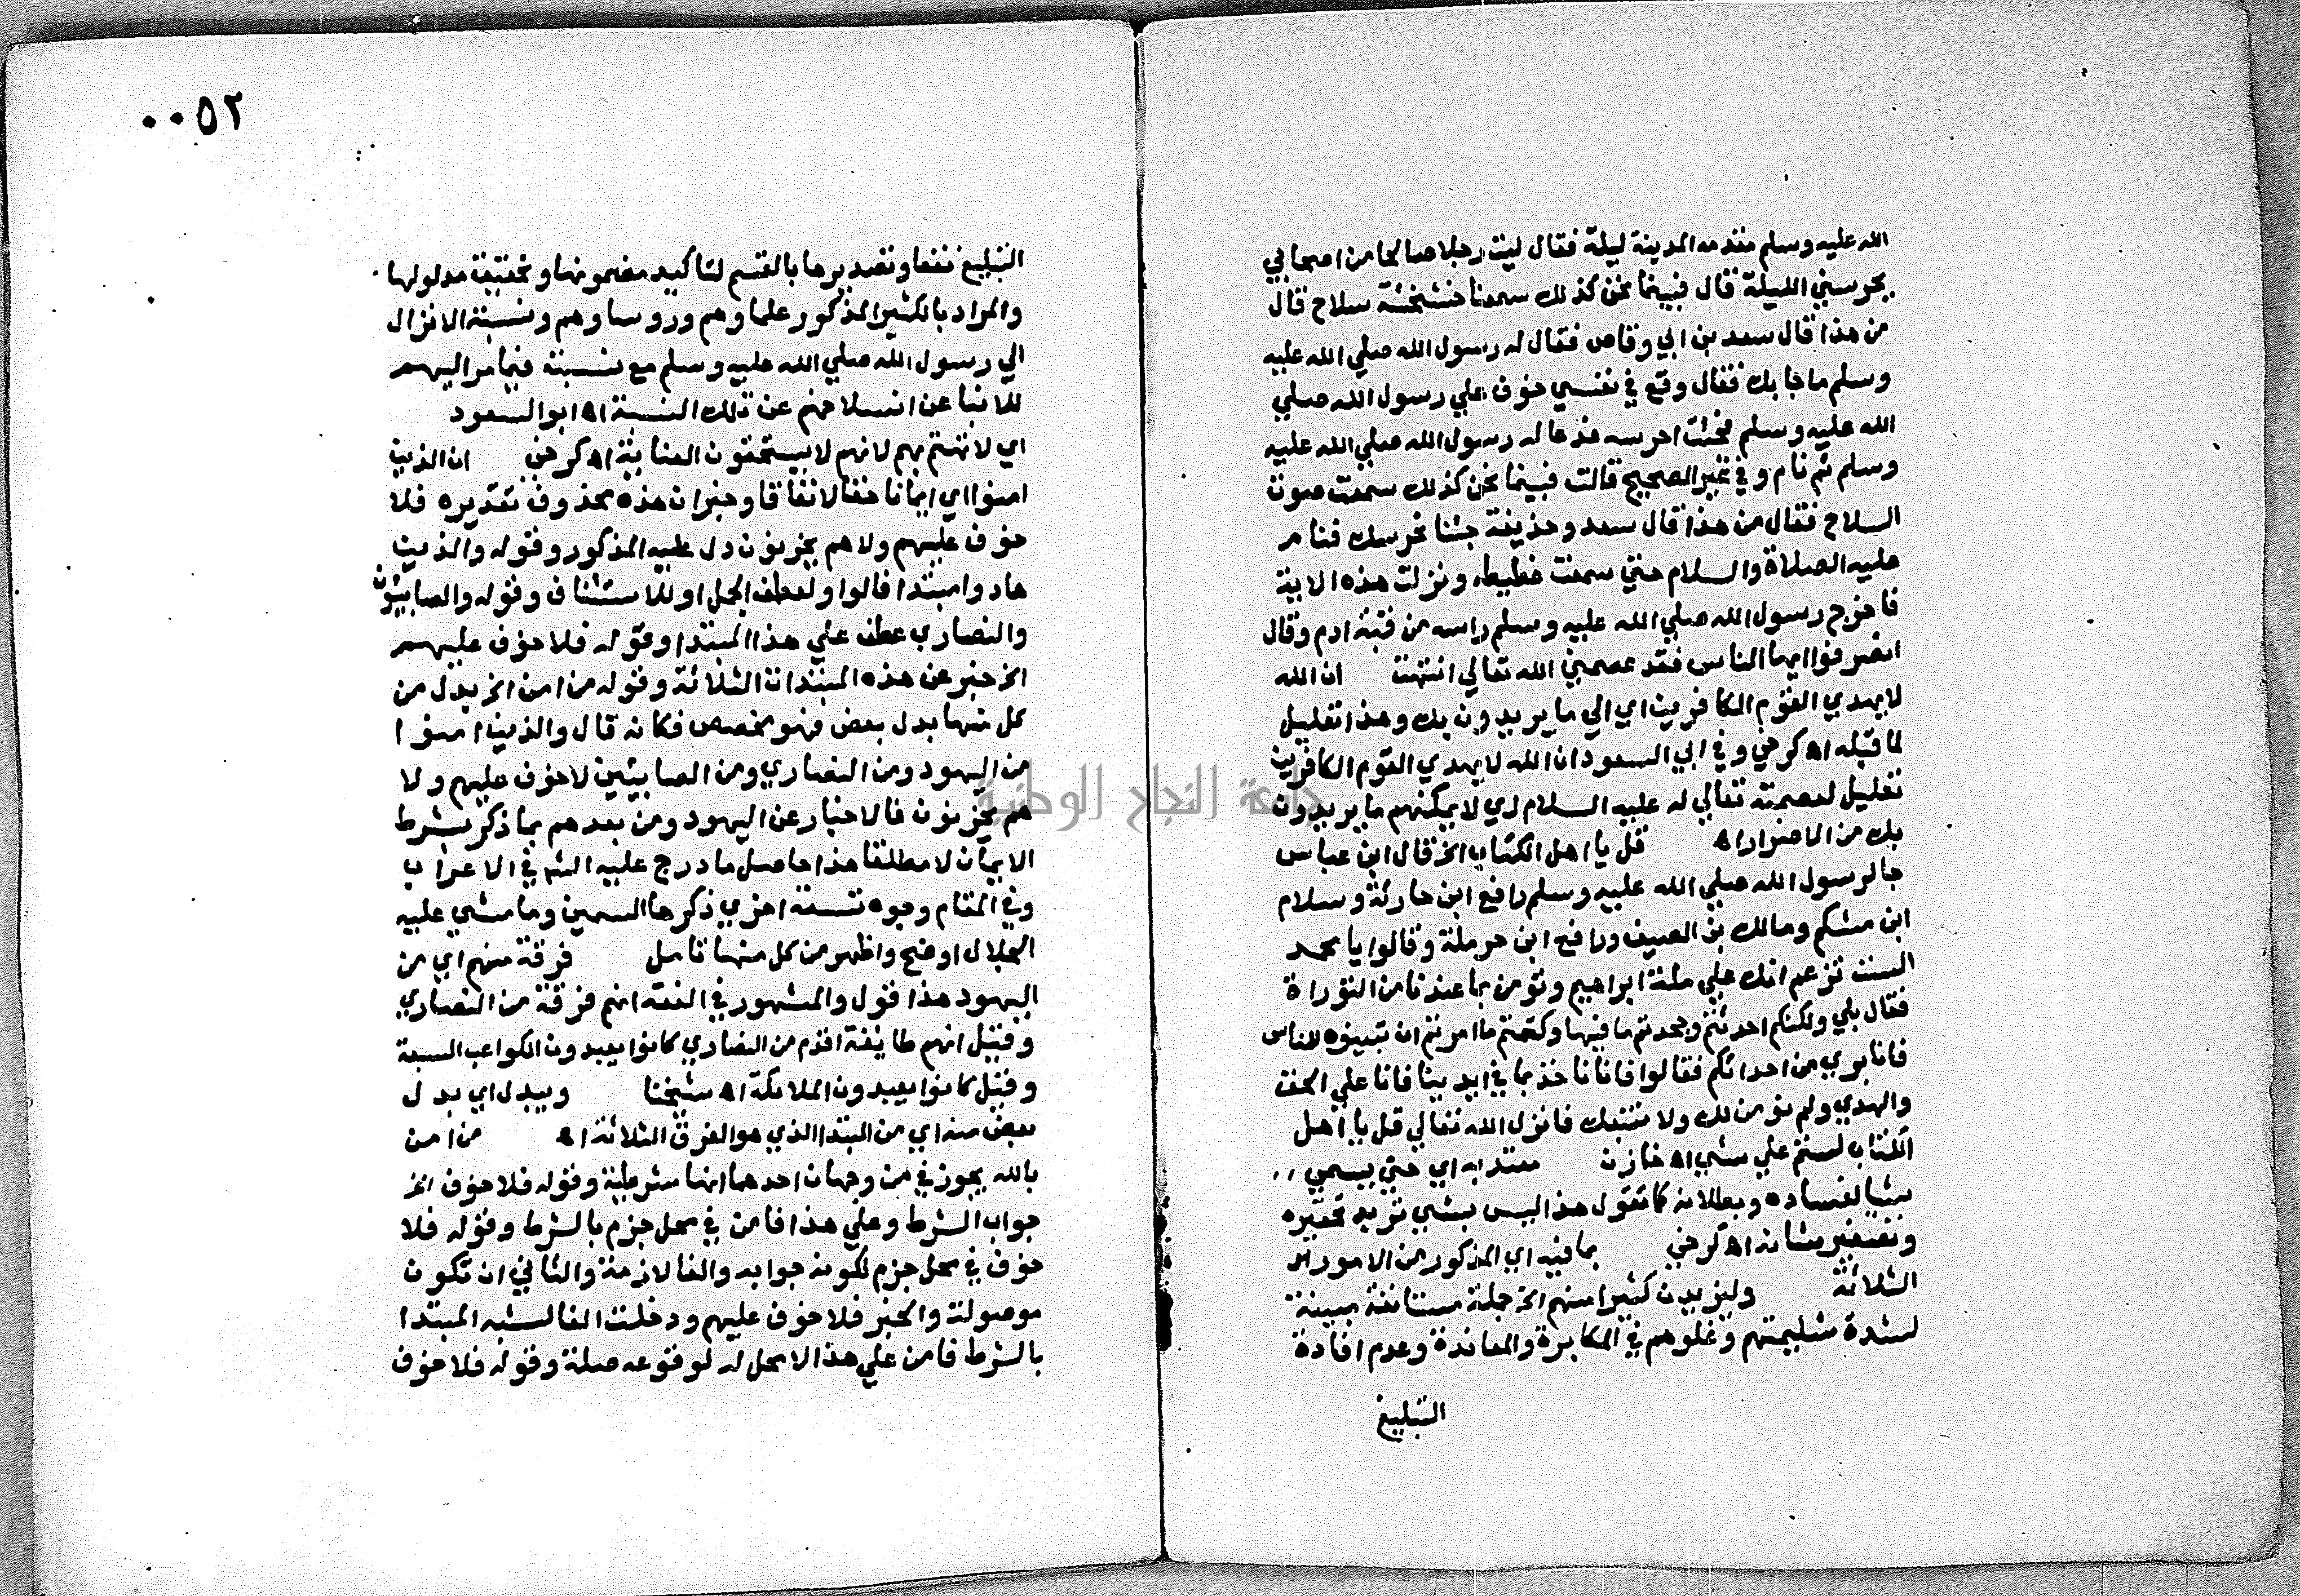 الله عليه وسلم مقدمه المدينة ليلة فقال ليت رجلا صالحا من اصحابي
يحرسني الليلة قال فبينما نحن كذلك سمعنا خشخشة سلاح قال
من هذا قال سعد بن ابي وقاص فقال له رسول الله صلي الله عليه
وسلم ما جا بك فقال وقع في نفسي خوف علي رسول الله صلي
الله عليه وسلم فجئت احرسه فدعا له رسول الله صلي الله عليه
وسلم ثم نام وفي غير الصحيح قالت فبينما نحن كذلك سمعت صوت
السلاح فقال من هذا قال سعد وحذيفة جئنا نحرسك فنام
عليه الصلاة والسلام حتي سمعت غطيطه ونزلت هذه الاية
فاخرج رسول الله صلي الله عليه وسلم راسه من قبة ادم وقال
انصرفوا ايها الناس فقد عصمني الله تعالي انتهت ان الله
لا يهدي القوم الكافرين اي الي ما يريدون بك وهذا تعليل
لما قبله اه كرخي وفي ابي السعود ان الله لا يهدي القوم الكافرين
تعليل لعصمته تعالي له عليه السلام اي لا يمكنهم ما يريدون
بك من الاضرار اه قل يا اهل الكتاب الخ قال ابن عباس
جا لرسول الله صلي الله عليه وسلم رافع ابن حارثة وسلام
ابن مشكم ومالك بن الصيف ورافع ابن حرملة وقالوا يا محمد
الست تزعم انك علي ملة ابراهيم وتومن بما عندنا من التوراة
فقال بلي ولكنكم احدثتم وجحدتم ما فيها وكتمتم ما امرتم ان تبينوه للناس
فانا بري من احداثكم فقالوا فانا ناخذ بما في ايدينا فانا علي الحق
والهدي ولم نومن لك ولا نتبعك فانزل الله تعالي قل يا اهل
الكتاب لستم علي شي اه خازن معتد به اي حتي يسمي
شيا لفساده وبطلانه كما تقول هذا ليس بشي تريد تحقيره
وتصغير شانه اه كرخي بما فيه اي المذكور من الامور
الثلاثة وليزيدن كثيرا منهم الخ جملة مستانفة مبينة
لشدة شكيمتهم وغلوهم في المكابرة والمعاندة وعدم افادة
التبليغ
٠٠٥٢
التبليغ نفعا وتصديرها بالقسم لتاكيد مضمونها وتحقيق مدلولها
والمراد بالكثير المذكور علماوهم وروساوهم ونسبة الانزال
الي رسول الله صلي الله عليه وسلم مع نسبته فيما مر اليهم
للانبا عن انسلاخهم عن تلك النسبة اه ابو السعود
اي لا تهتم بهم لانهم لا يستحقون العناية اه كرخي ان الذين
امنوا اي ايمانا حقا لا نفاقا وخبر ان هذه محذوف تقديره فلا
خوف عليهم ولا هم يحزنون دل عليه المذكور وقوله والذين
هادوا مبتدا فالواو لعطف الجمل او للاستئناف وقوله والصابيون
والنصاري عطف علي هذا المبتدا وقوله فلا خوف عليهم
الخ خبر عن هذه المبتدات الثلاثة وقوله من امن الخ بدل من
كل منها بدل بعض فهو مخصص فكانه قال والذين امنوا
من اليهود ومن النصاري ومن الصابئين لا خوف عليهم ولا
هم يحزنون فالاخبار عن اليهود ومن بعدهم بما ذكر بشرط
الايمان لا مطلقا هذا حاصل ما درج عليه الش في الاعراب
وفي المقام وجوه تسعة اخري ذكرها السمين وما مشي عليه
الجلال اوضح واظهر من كل منها تامل فرقة منهم اي من
اليهود هذا قول والمشهور في الفقه انهم فرقة من النصاري
وقيل انهم طايفة اقدم من النصاري كانوا يعبدون الكواكب السبعة
وقيل كانوا يعبدون الملائكة اه شيخنا ويبدل اي بدل
بعض منه اي من المبتدا الذي هو الفرق الثلاثة اه من امن
بالله يجوز في من وجهان احدهما انها شرطية وقوله فلا خوف الخ
جواب الشرط وعلي هذا فامن في محل جزم بالشرط وقوله فلا
خوف في محل جزم لكونه جوابه والفا لازمة والثاني ان تكون
موصولة والخبر فلا خوف عليهم ودخلت الفا لشبه المبتدا
بالشرط فامن علي هذا لا محل له لوقوعه صلة وقوله فلا خوف
جامعة النجاح الوطنية